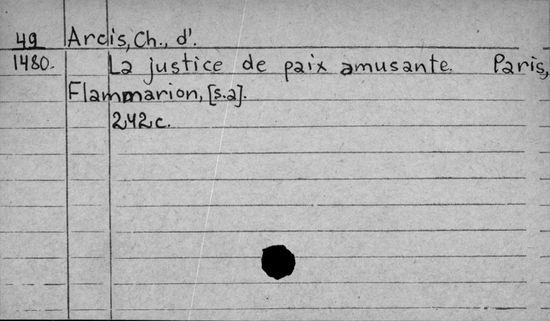 49 Arcis, Ch., d'.
1480. La justice de paix amusante. Paris,
Flammarion, [s.a].
242 c.